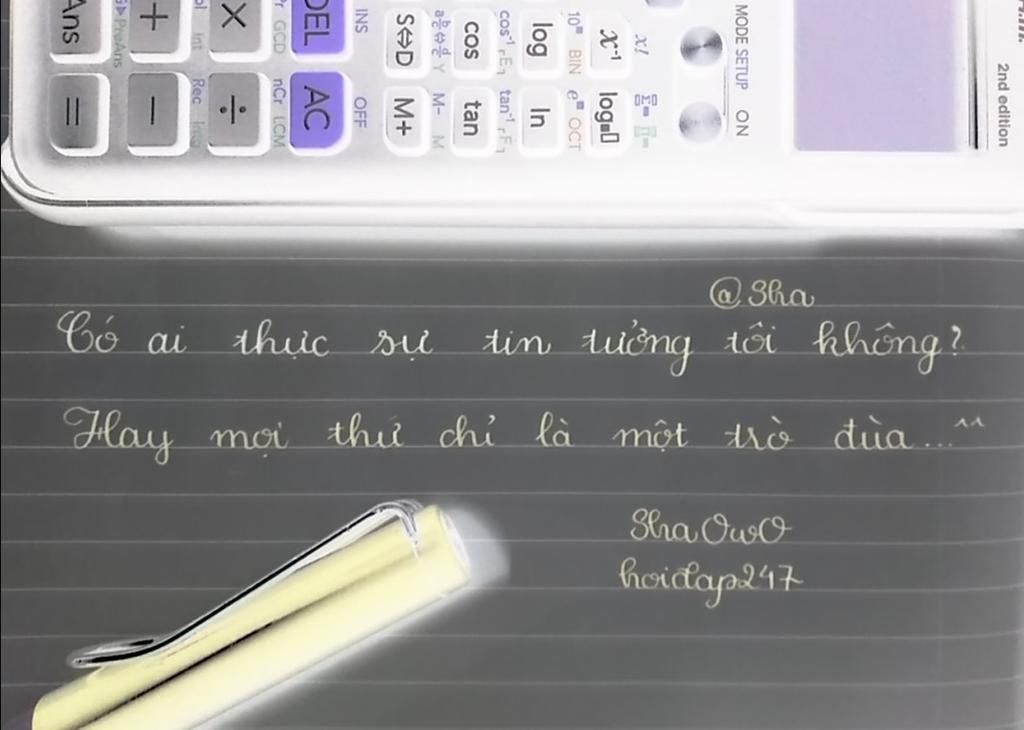 2nd edition
MODE SETUP ON
x!
x⁻¹ log
10■ BIN e■ OCT
log ln
cos⁻¹ E tan⁻¹ F
cos tan
Y M- M
S⇔D M+
INS OFF
DEL AC
GCD nCr LCM
× ÷
Int Rec
+ −
PreAns
Ans =
@Sha
Có ai thực sự tin tưởng tôi không?
Hay mọi thứ chỉ là một trò đùa...^^
Sha OwO
hoidap247